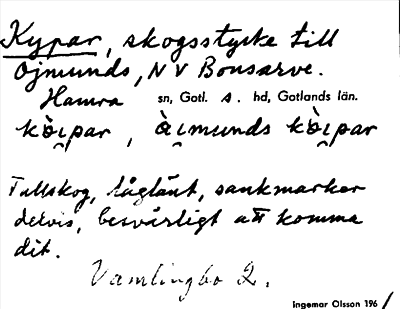 Kypar, skogsstycke till
Ojmunds, NV Bonsarve.
Hamra sn, Gotl. s. hd, Gotlands län.
kö̀i̯par, ài̯munds kö̀i̯par
Tallskog, låglänt, sankmarker
delvis, besvärligt att komma
dit.
Vamlingbo 2.
Ingemar Olsson 1961